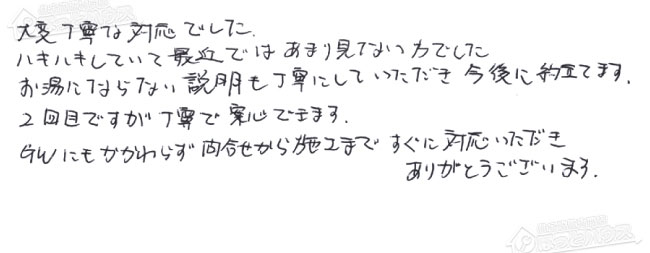 大変丁寧な対応でした.
ハキハキしていて最近ではあまり見てない方でした
お湯にならない説明も丁寧にしていただき今後に約立てます.
2回目ですが丁寧で案心できます.
GWにもかかわらず問合せから施工まですぐに対応いただき
ありがとうございます.